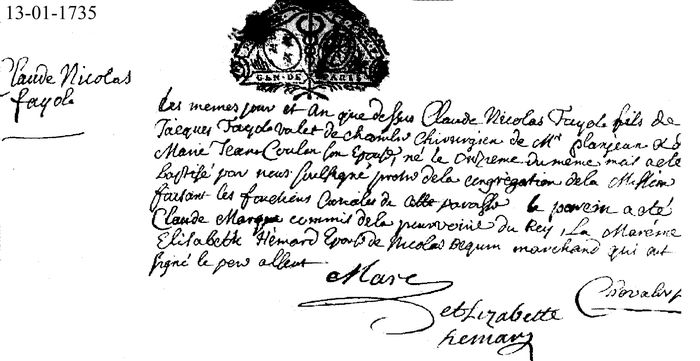 13-01-1735
GEN. DE PARIS
Claude Nicolas
fayole
Les memes jour et An que dessus Claude Nicolas Fayole fils de
Jacques Fayole valet de chambre Chirurgien de Mr planjean &
Marie Jeane Coulon son Epouse, né le onzieme du meme mois a été
baptisé par nous soussigné pretre de la congrégation de la Mission
faisant les fonctions Curiales de cette paroisse le parein a été
Claude Marque commis de la pourvoirie du Roy, La Mareine
Elisabeth Hémard Epouse de Nicolas Begum marchand qui ont
signé le pere absent
Marc
etLizabette
hemar